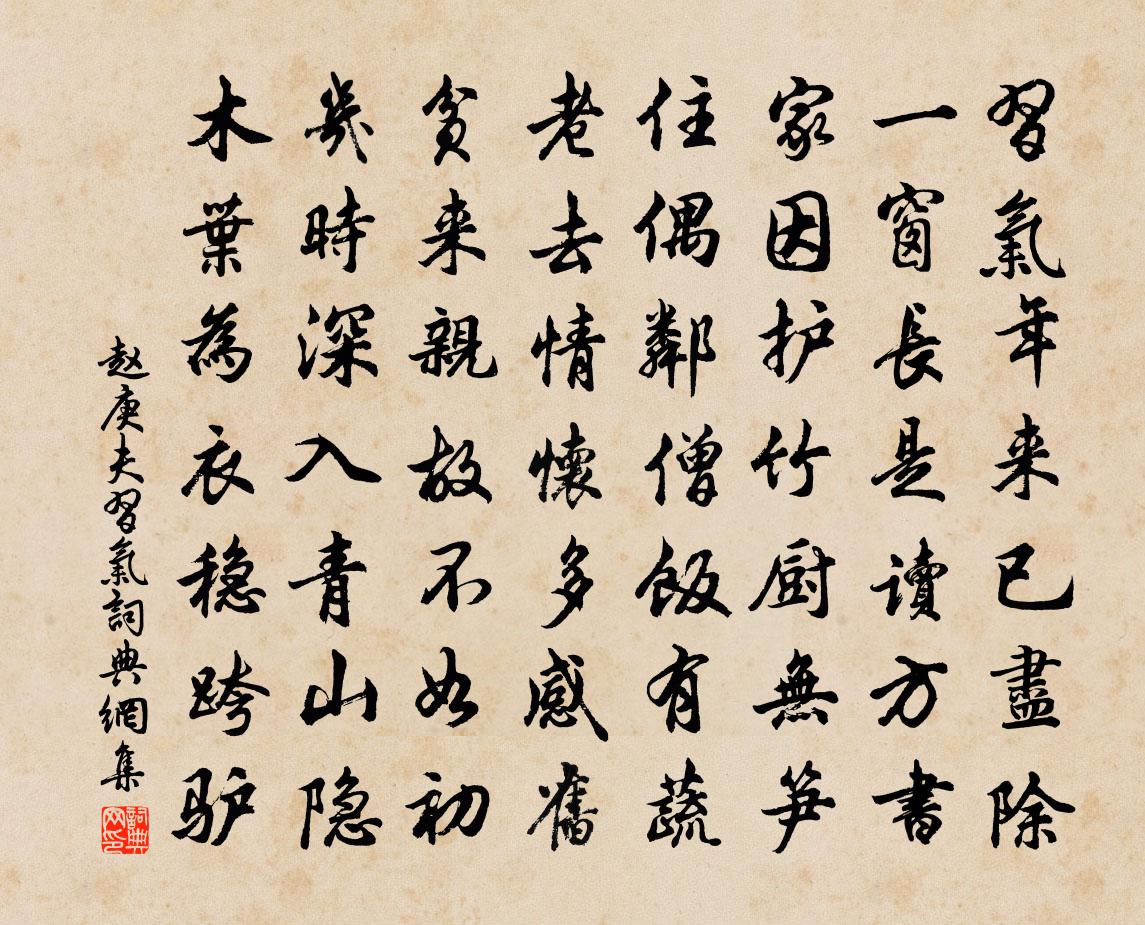 習氣年来已盡除
一窗長是讀方書
家因护竹厨無笋
住偶鄰僧飯有蔬
老去情懷多感舊
貧来親故不如初
幾時深入青山隐
木葉為衣稳跨驴
赵庚夫習氣詞典網集
詞典网印